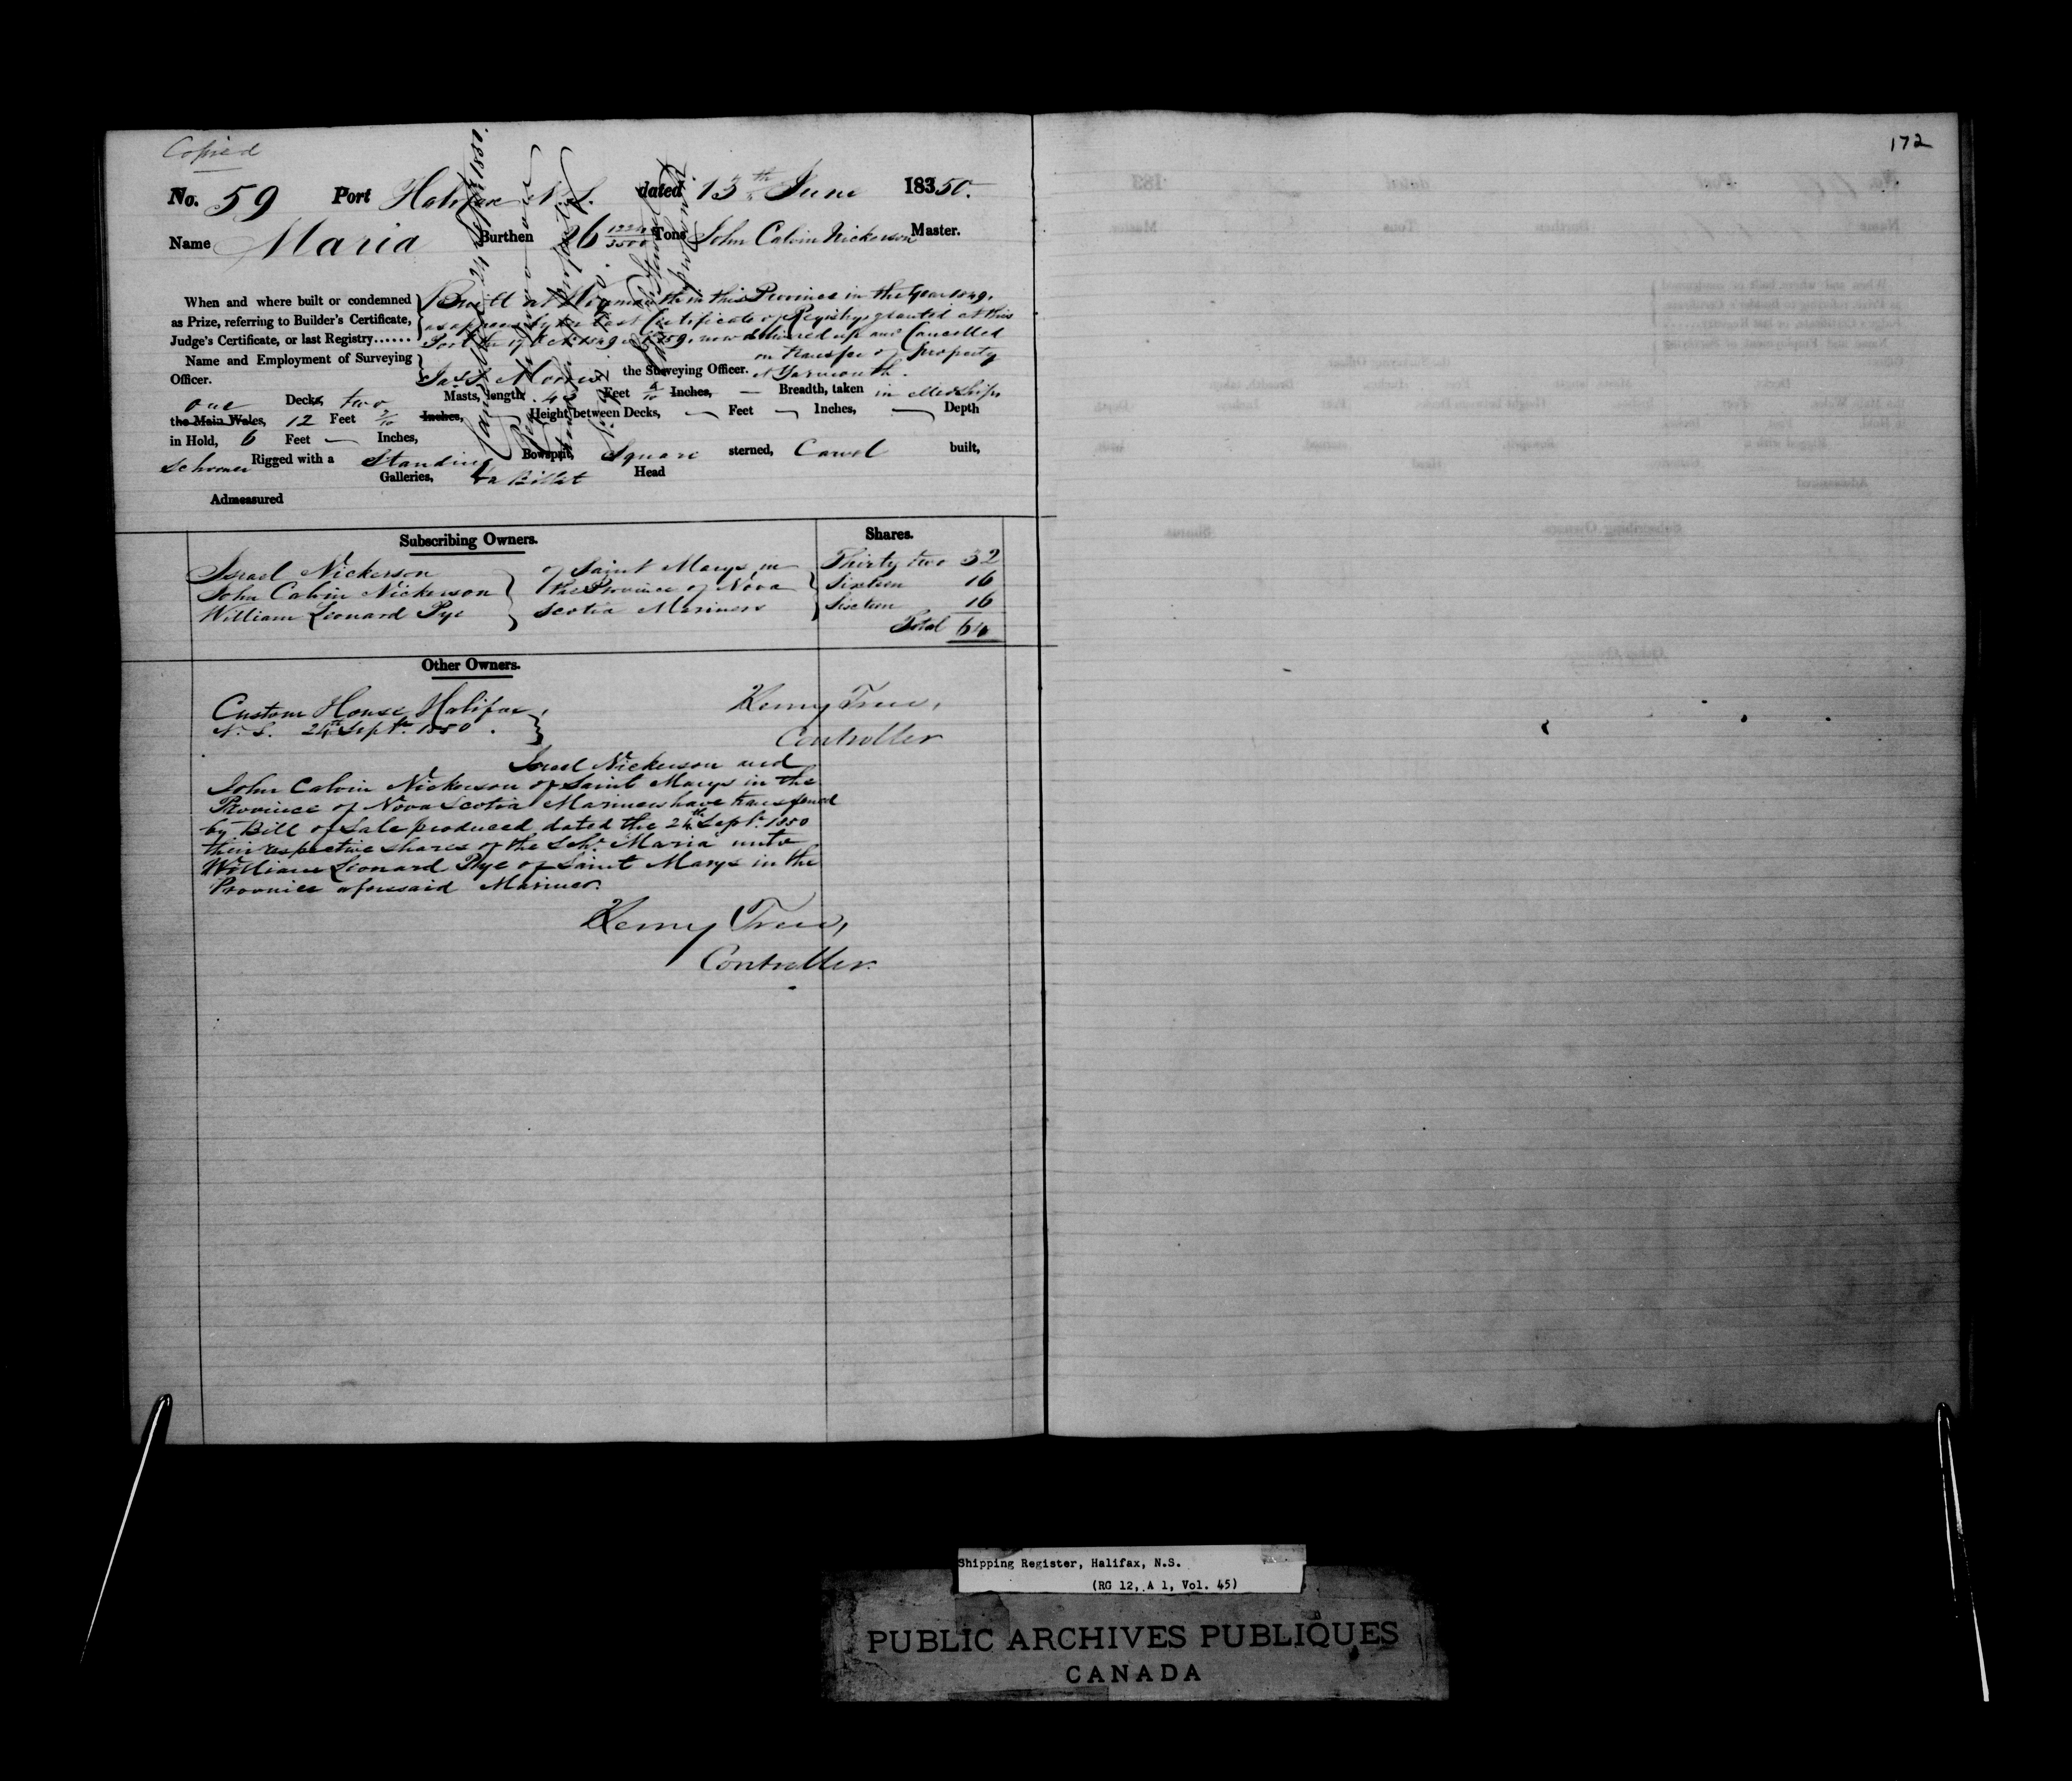 Copied
172
No. 59 Port Halifax N.S. dated 13th June 18350.
Name Maria Burthen 26 1224/3500 Tons John Calvin Nickerson Master.
When and where built or condemned
as Prize, referring to Builder's Certificate,
Judge's Certificate, or last Registry......
Built at in this Province in the Year 1849,
as appears by her last Certificate of Registry granted at this
Port the 1849 No 59, now delivered up and Cancelled
on transfer of property
at Yarmouth.
Name and Employment of Surveying
Officer.
Morris the Surveying Officer.
one Decks, two Masts, length 43 Feet Inches, — Breadth, taken in Midships
the Main Wales, 12 Feet 2/10 Inches, Height between Decks, — Feet — Inches, — Depth
in Hold, 6 Feet — Inches,
Schooner Rigged with a Standing Bowsprit, Square sterned, Carvel built,
Galleries, a Billet Head
Admeasured
Subscribing Owners. Shares.
Israel Nickerson of Saint Marys in Thirty two 32
John Calvin Nickerson the Province of Nova Sixteen 16
William Leonard Pye Scotia Mariners Sixteen 16
Total 64
Other Owners.
Custom House Halifax, Henry Trew,
N.S. 24th Sept. 1850. Controller
Israel Nickerson and
John Calvin Nickerson of Saint Marys in the
Province of Nova Scotia Mariners have transferred
by Bill of Sale produced dated the 24th Sept. 1850
their respective shares of the Schr. Maria unto
William Leonard Pye of Saint Marys in the
Province aforesaid Mariner.
Henry Trew,
Controller.
Shipping Register, Halifax, N.S.
(RG 12, A 1, Vol. 45)
PUBLIC ARCHIVES PUBLIQUES
CANADA